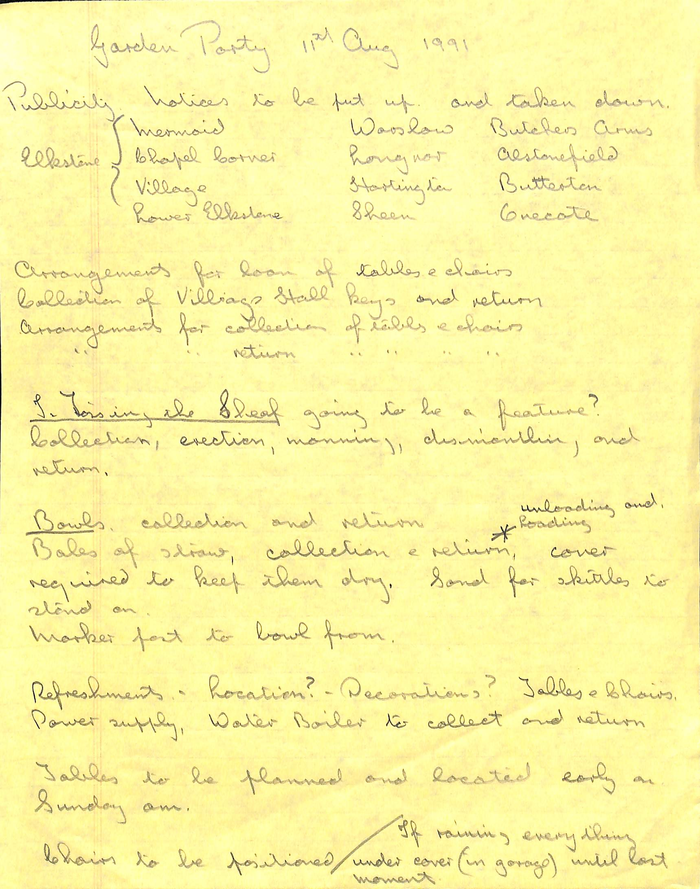 Garden Party 11st Aug 1991
Publicity Notices to be put up. and taken down.
Mermaid Warslow Butchers Arms
Elkstone Chapel Corner Longnor Alstonefield
Village Hartington Butterton
Lower Elkstone Sheen Onecote
Arrangements for loan of tables & chairs
Collection of Village Hall keys and return
Arrangements for collection of tables & chairs
" " return " " " "
Is Tossing the Sheaf going to be a feature?
Collection, erection, manning, dismantling, and
return.
Bowls. collection and return
unloading and.
loading
Bales of straw, collection & return,* cover
required to keep them dry. Sand for skittles to
stand on.
Marker post to bowl from.
Refreshments - Location? - Decorations? Tables & Chairs.
Power supply, Water Boiler to collect and return
Tables to be planned and located early on
Sunday am.
If raining everything
Chairs to be positioned / under cover (in garage) until last
moment